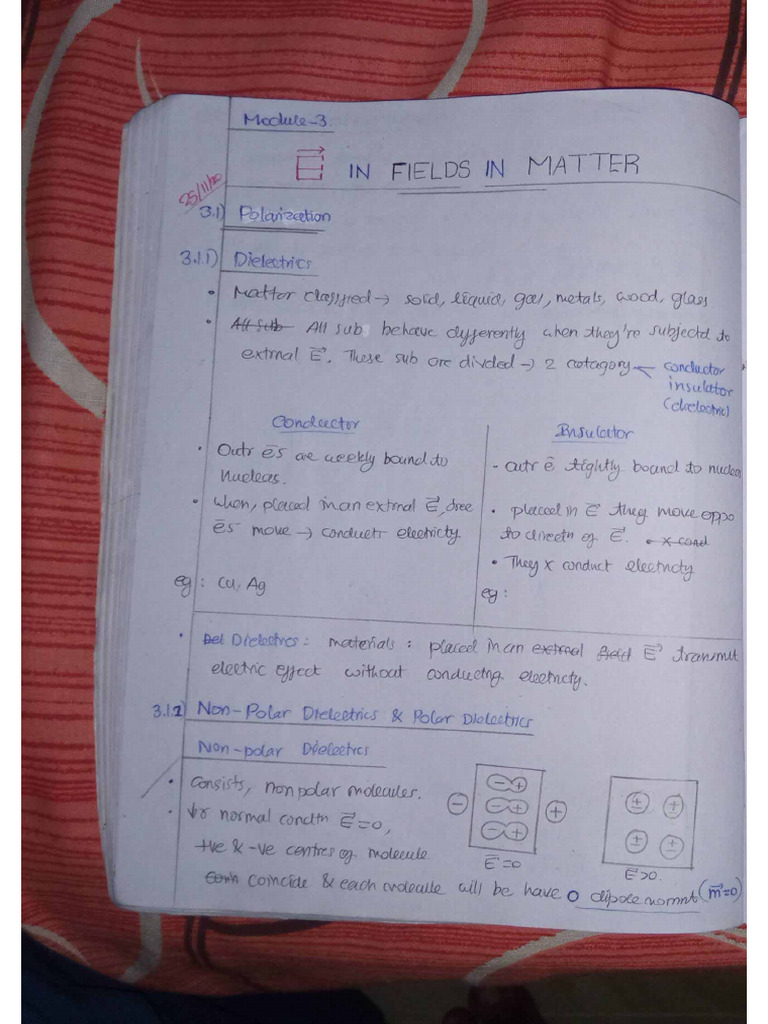 Module-3.
E⃗ IN FIELDS IN MATTER
25/11/20
3.1) Polarization
3.1.1) Dielectrics
• Matter classified → solid, liquid, gas, metals, wood, glass
• All sub All sub behave differently when they're subjectd to
extrnal E⃗. These sub are divided → 2 catagory conductor
insulator
(dielectric)
Conductor
• Outr ēs are weekly bound to
nucleus.
• When, placed in an extrnal E⃗, free
ēs move → conductr electricty
eg: Cu, Ag
Insulator
- outr ē tightly bound to nucle
• placed in E⃗ they move oppo
to directn of E⃗. • x cond
• They x conduct electricty
eg:
• Del Dielectrcs: materials: placed in an extrnal field E⃗ transmit
electric effect without conductng electricty.
3.1.2) Non-Polar Dielectrics & Polar Dielectrics
Non-polar Dielectrcs
• Consists, non polar molecules.
• Vr normal condtn E⃗=0,
+ve & -ve centres of molecule
coincide & each molecule will be have 0 dipole momnt (m⃗=0)
- - + +
- +
- +
E⃗=0
± ±
± ±
E⃗>0.